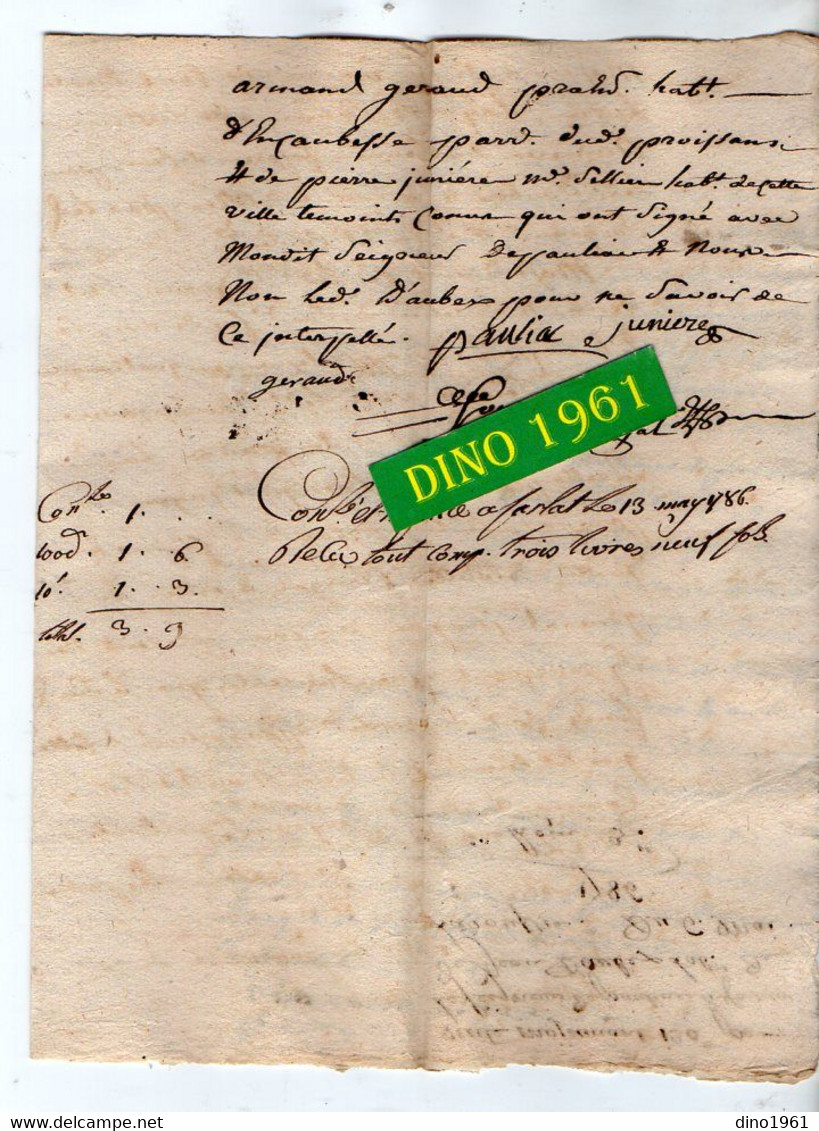 armand geraud prahd. habt.
d'Encaubesse parr. dud. proissans
& de pierre juniére md. sellier habt. de cette
ville temoints connus qui ont signé avec
Mondit Seigneur Depauliac & Nous
Non led. D'aubex pour ne Savoir de
Ce interpellé. pauliac juniere
geraud
DINO 1961
Conlé et a sarlat le 13 may 1786
Recu tout comp. trois livres neuf sols
Conle. 1.
1. 6
10s. 1. 3.
3. 9
1786
Du 6. Mai
dino1961